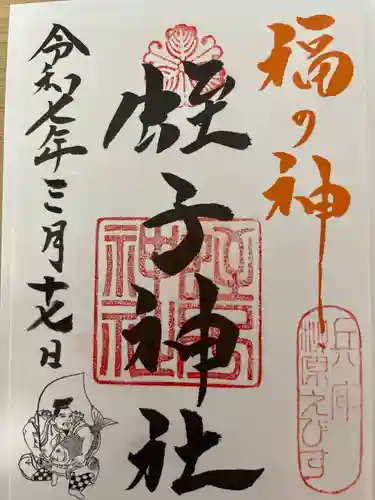 福の神
兵庫
柳原えびす
蛭子神社
蛭子神社
令和七年三月十七日